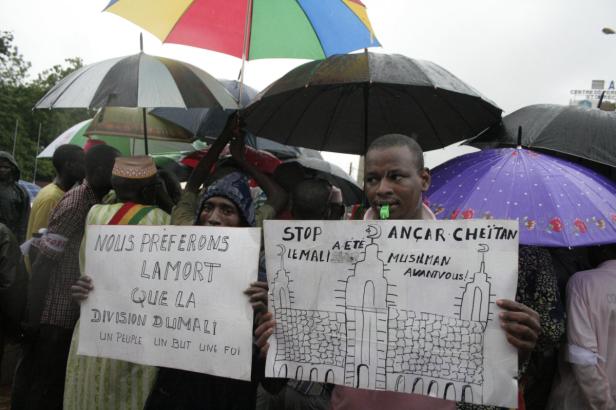 NOUS PRÉFERONS
LA MORT
QUE LA
DIVISION DU MALI
UN PEUPLE UN BUT UNE FOI
STOP ANÇAR-CHEÏTAN
LE MALI A ÉTÉ MUSULMAN
AVANT VOUS!